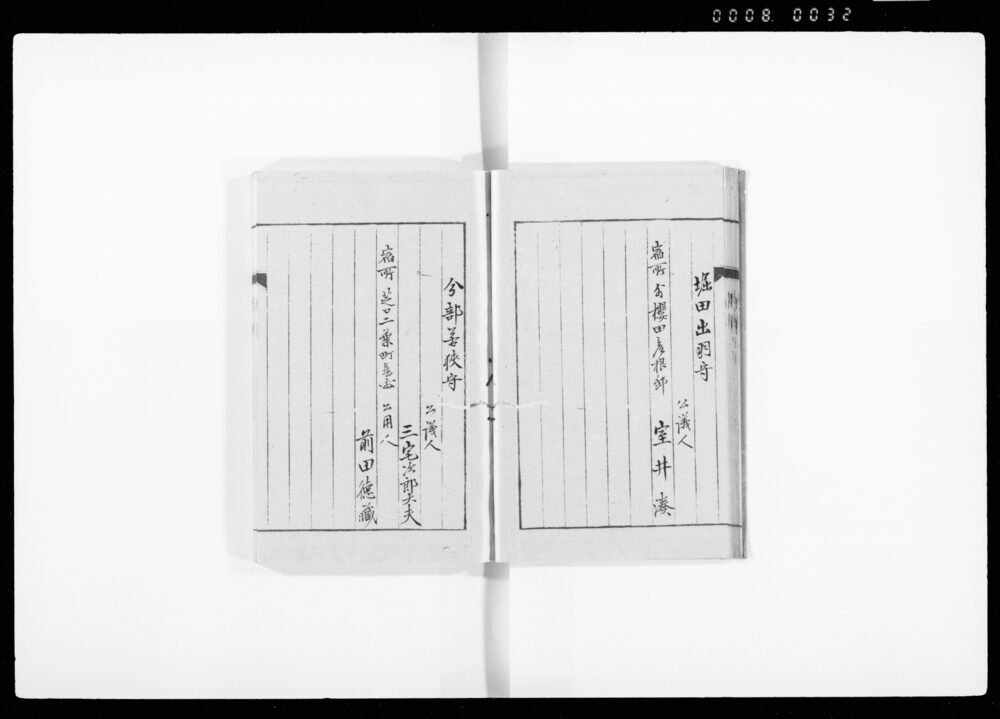 0008 0032
堀田出羽守
公議人
宿所 外櫻田彦根邸 室井湊
分部若狹守
公議人
三宅次郎大夫
宿所 芝口二葉町 公用人
前田德藏